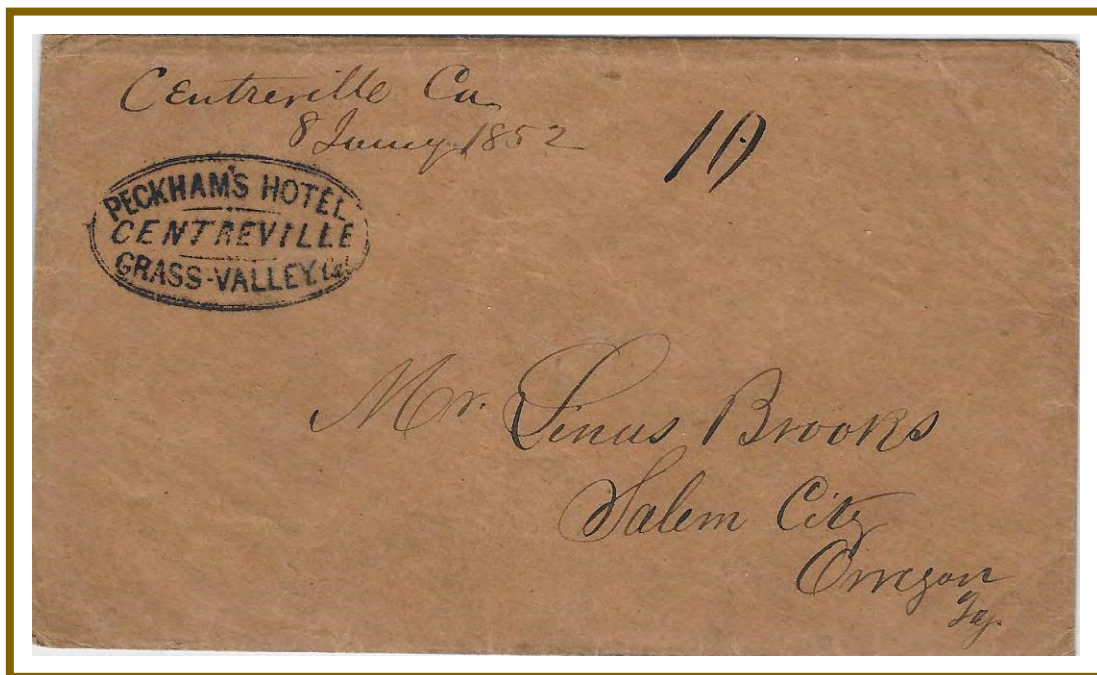 Centreville Ca
8 Jany 1852
10
PECKHAM'S HOTEL.
CENTREVILLE
GRASS-VALLEY. Cal
Mr. Linus Brooks
Salem City
Orregon